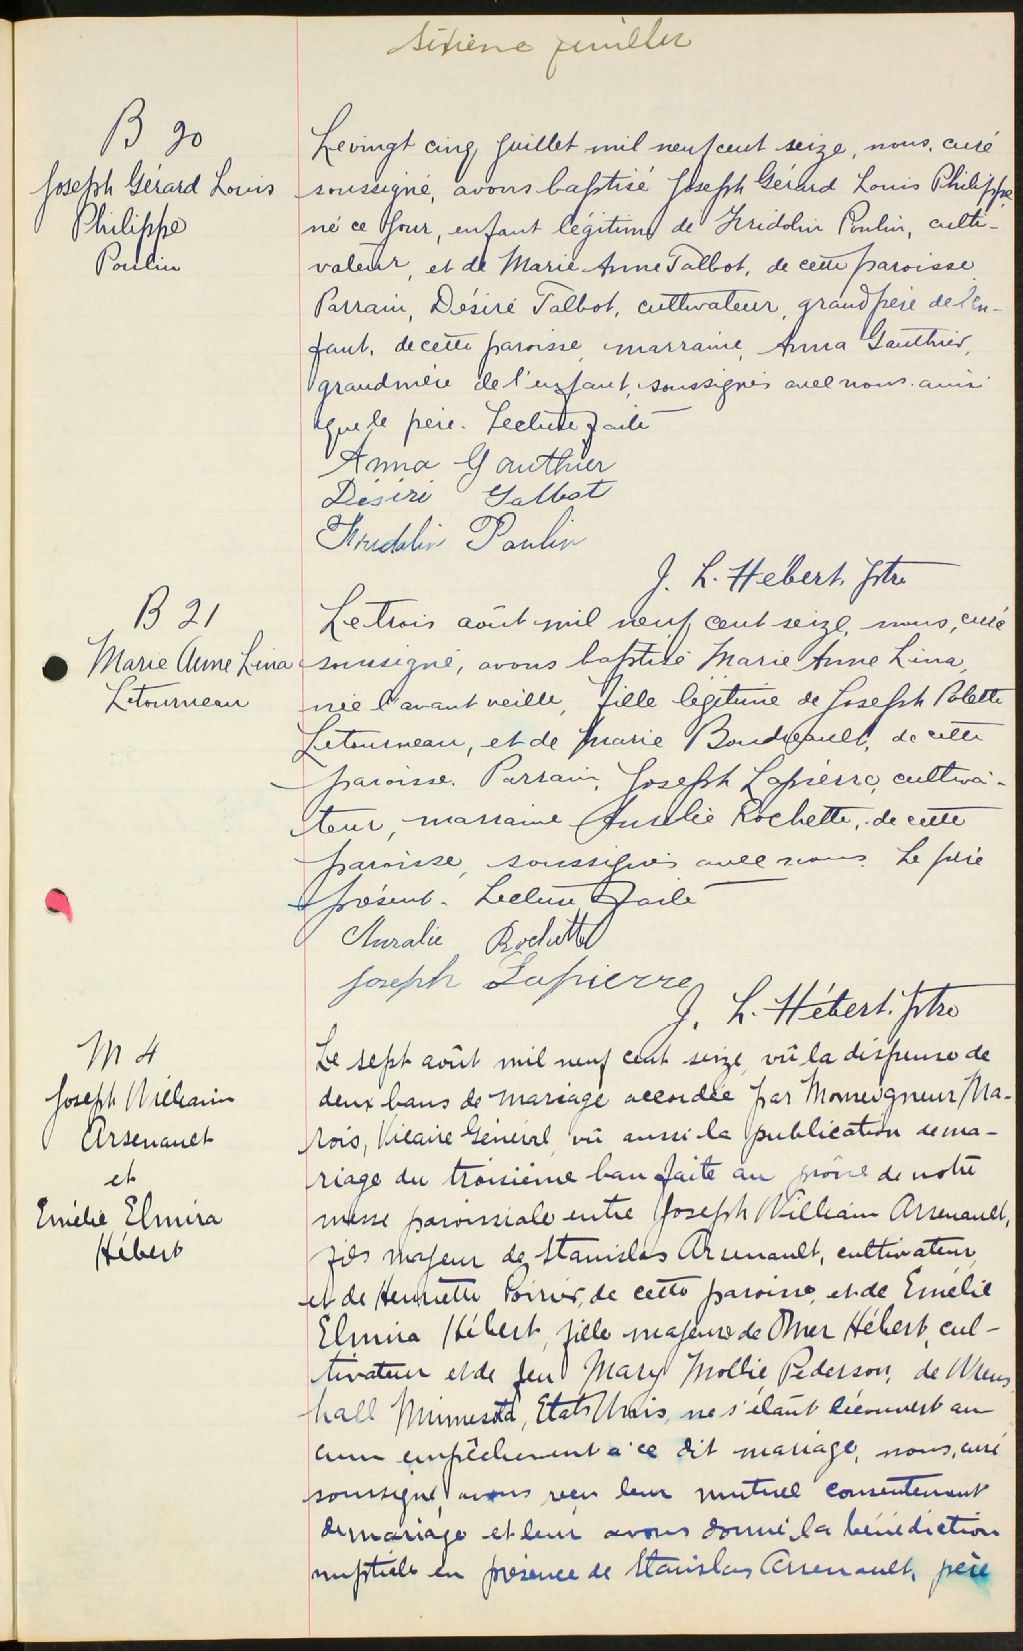 Sixième feuillet
B 20
Joseph Gérard Louis
Philippe
Poulin
Le vingt cinq juillet mil neuf cent seize, nous, curé
soussigné, avons baptisé Joseph Gérard Louis Philippe
né ce jour, enfant légitime de Fridolin Poulin, culti-
vateur, et de Marie Anne Talbot, de cette paroisse
Parrain, Désiré Talbot, cultivateur, grand père de l'en-
fant, de cette paroisse, marraine, Anna Gauthier,
grandmère de l'enfant, soussignés avec nous ainsi
que le père. Lecture faite
Anna Gauthier
Désiré Talbot
Fridolin Poulin
J. L. Hébert. ptre
B 21
Marie Anne Lina
Letourneau
Le trois août mil neuf cent seize, nous, curé
soussigné, avons baptisé Marie Anne Lina,
née l'avant veille, fille légitime de Joseph Polette
Letourneau, et de Marie Boudreault, de cette
paroisse. Parrain, Joseph Lapierre, cultiva-
teur, marraine Aurélie Rochette, de cette
paroisse, soussignés avec nous. Le père
présent. Lecture faite
Auralie Rochette
Joseph Lapierre
J. L. Hébert. ptre
M 4
Joseph William
Arsenault
et
Emélie Elmira
Hébert
Le sept août mil neuf cent seize, vû la dispense de
deux bans de mariage accordée par Monseigneur Ma-
rois, Vicaire Général, vû aussi la publication de ma-
riage du troisième ban faite au prône de notre
messe paroissiale entre Joseph William Arsenault,
fils majeur de Stanislas Arsenault, cultivateur,
et de Henriette Poirier, de cette paroisse, et de Emélie
Elmira Hébert, fille majeure de Omer Hébert, cul-
tivateur et de feu Mary Mollie Pederson, de
hall Minnesota, Etats Unis, ne s'étant découvert au
cun empêchement à ce dit mariage, nous, curé
soussigné, avons reçu leur mutuel consentement
de mariage et leur avons donné la bénédiction
nuptiale en présence de Stanislas Arsenault, père